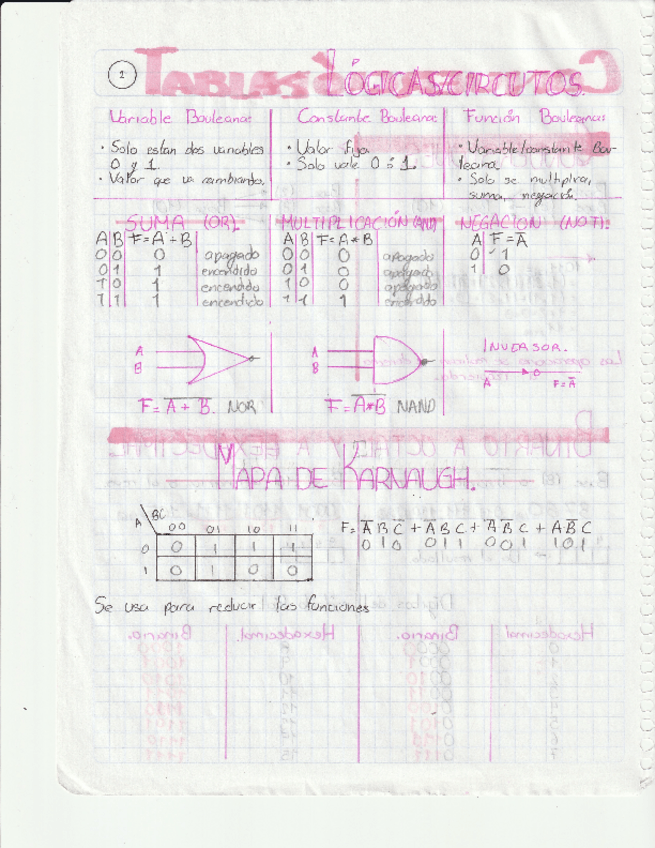 2
TABLAS LÓGICAS/CIRCUTOS.
Variable Bouleana:
• Solo estan dos variables
0 y 1.
• Valor que va cambiando.
Constante Bouleana:
• Valor fijo.
• Solo vale 0 ó 1.
Función Bouleana:
• Variable/constante Bou-
leana.
• Solo se multiplica,
suma, negación.
SUMA (OR).
A B F=A+B
0 0 0 apagado
0 1 1 encendido
1 0 1 encendido
1 1 1 encendido
MULTIPLICACIÓN (AND)
A B F=A*B
0 0 0 apagado
0 1 0 apagado
1 0 0 apagado
1 1 1 encendido
NEGACION (NOT):
A F=A̅
0 1
1 0
A
B
F= A̅ ̅+̅ ̅B̅. NOR
A
B
F= A̅*̅B̅ NAND
INVERSOR.
A F=A̅
MAPA DE KARNAUGH.
A BC
00 01 10 11
0 0 1 1 1
1 0 1 0 0
F= A̅ B C̅ + A̅ B C + A̅ B̅ C + A B̅ C
0 1 0 0 1 1 0 0 1 1 0 1
Se usa para reducir las funciones